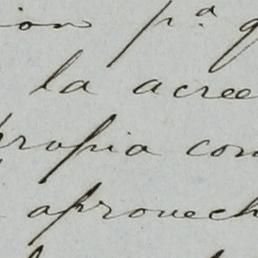 ion p.ª q
la acree
propia con
aprovech